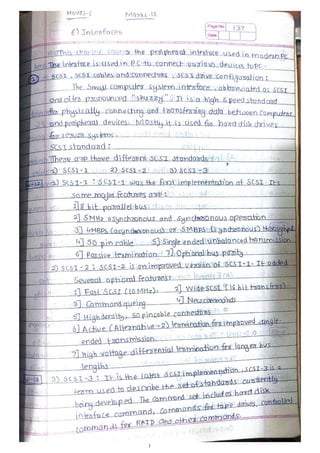 Hours-8 Marks-12
Page No. 137
Date
6) Interfaces
This chapter covers the peripheral interface used in modern PC
The interface is used in PC to connect various devices to PC.
SCSI, SCSI cables and connectors, SCSI drive configuration:
The Small computer system interface abbreviated as SCSI
and often pronounced "skuzzy". It is a high speed standard
for physically connecting and transferring data between computers
and peripheral devices. Mostly it is used for hard disk drives
for server systems.
SCSI standard:
There are three different SCSI standards
1) SCSI-1 2) SCSI-2 3) SCSI-3
1) SCSI-1: SCSI-1 was the first implementation of SCSI. It's
some major features are:
1] 8 bit parallel bus
2] 5 MHz asynchronous and synchronous operation
3] 4MBPS (asynchronous) or 5MBPS (synchronous) throughput
4] 50 pin cable 5] Single ended unbalanced transmission
6] Passive termination 7] Optional bus parity.
2) SCSI-2: SCSI-2 is an improved version of SCSI-1. It added
several optional features:
1] Fast SCSI (10MHz) 2] Wide SCSI (16 bit transfers)
3] Command queuing 4] New commands
5] High density, 50 pin cable connectors
6] Active (Alternative-2) termination for improved single
ended transmission
7] High voltage differential termination for longer bus
lengths
3) SCSI-3: It is the latest SCSI implementation. SCSI-3 is a
term used to describe the set of standards currently
being developed. The command set includes hard disk
interface command, commands for tape drives, controller
commands for RAID and other commands.
1